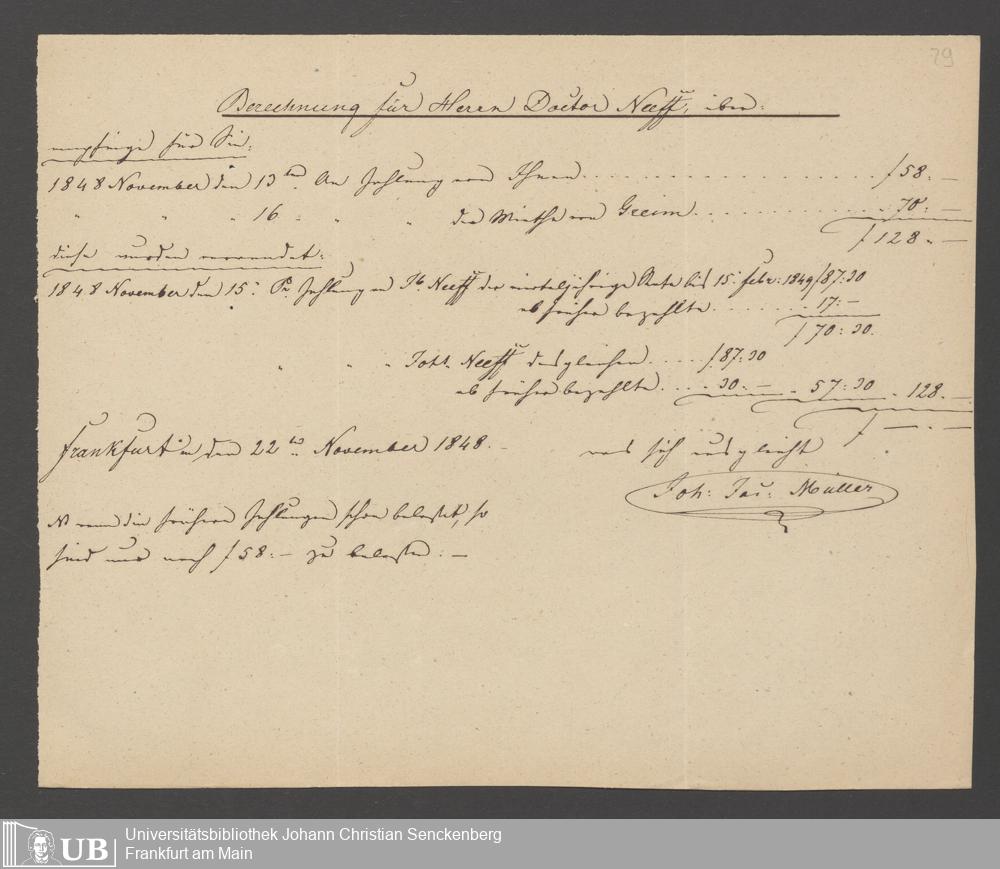 79
Berechnung für Herrn Doctor Neeff, über:
empfinge für Sie:
1848 November den 13ten An Zahlung von Ihnen . . . . . . . . f 58. —
" " " 16 " " " der Miethe von Greim . . . . . . . . 70. —
f 128. —
diese wurden verwendet:
1848 November den 15. Pr Zahlung an Neeff der vierteljährige Rata bis 15. Febr: 1849 f 87: 30
ab früher bezahlte . . . . . . 17: —
f 70: 30.
" " " Joh. Neeff desgleichen . . . . f 87: 30
ab früher bezahlte . . . . 30. — . 57: 30 . 128. —
f — . —
Frankfurt a/m den 22ten November 1848. was sich ausgleicht
Joh: Jac: Müller
NB wenn die frühern Zahlungen schon belastet, so
sind nur noch f 58: — zu belasten. —
UB Universitätsbibliothek Johann Christian Senckenberg
Frankfurt am Main